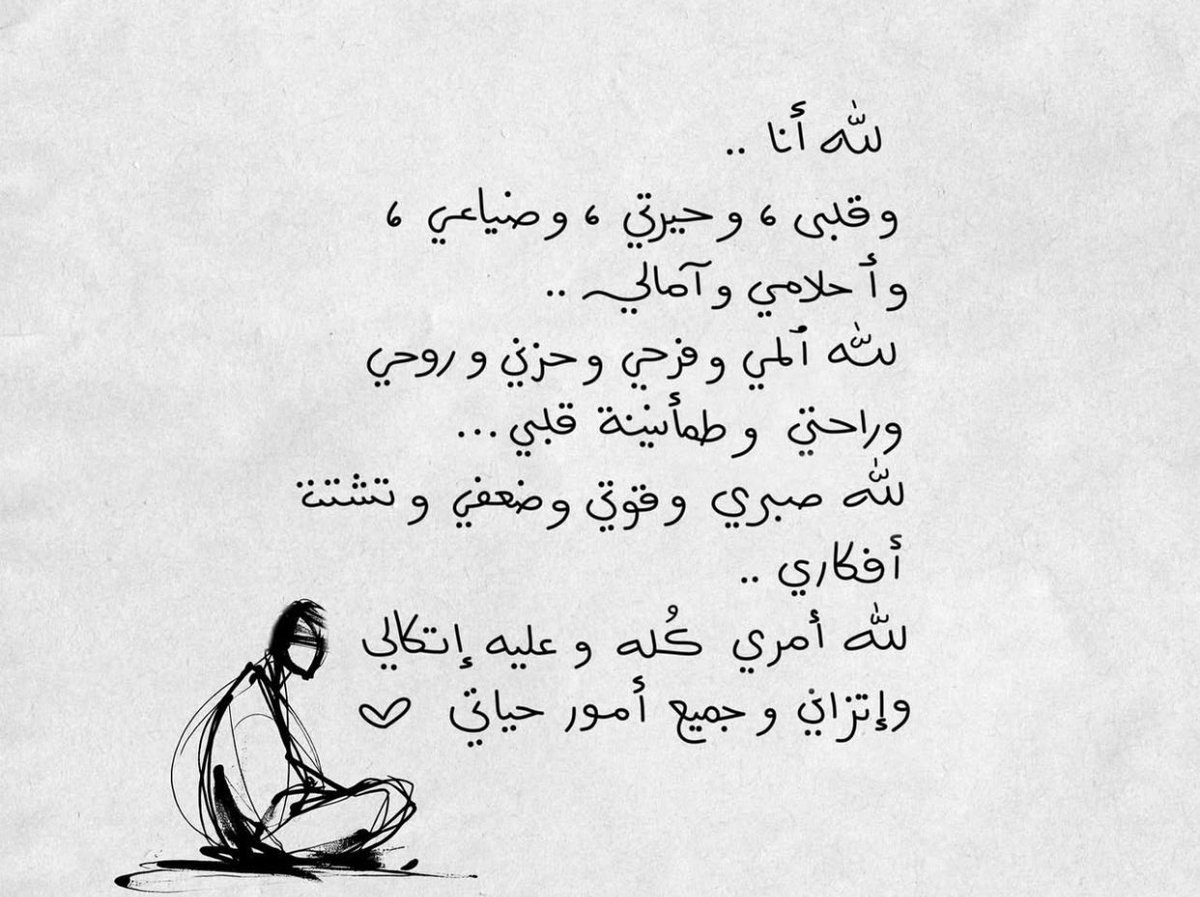 لله أنا ..
وقلبى ، وحيرتي ، وضياعي ،
وأحلامي وآمالي ..
لله ألمي وفرحي وحزني وروحي
وراحتي وطمأنينة قلبي ...
لله صبري وقوتي وضعفي وتشتت
أفكاري ..
لله أمري كُله وعليه إتكالي
وإتزاني وجميع أمور حياتي ♡